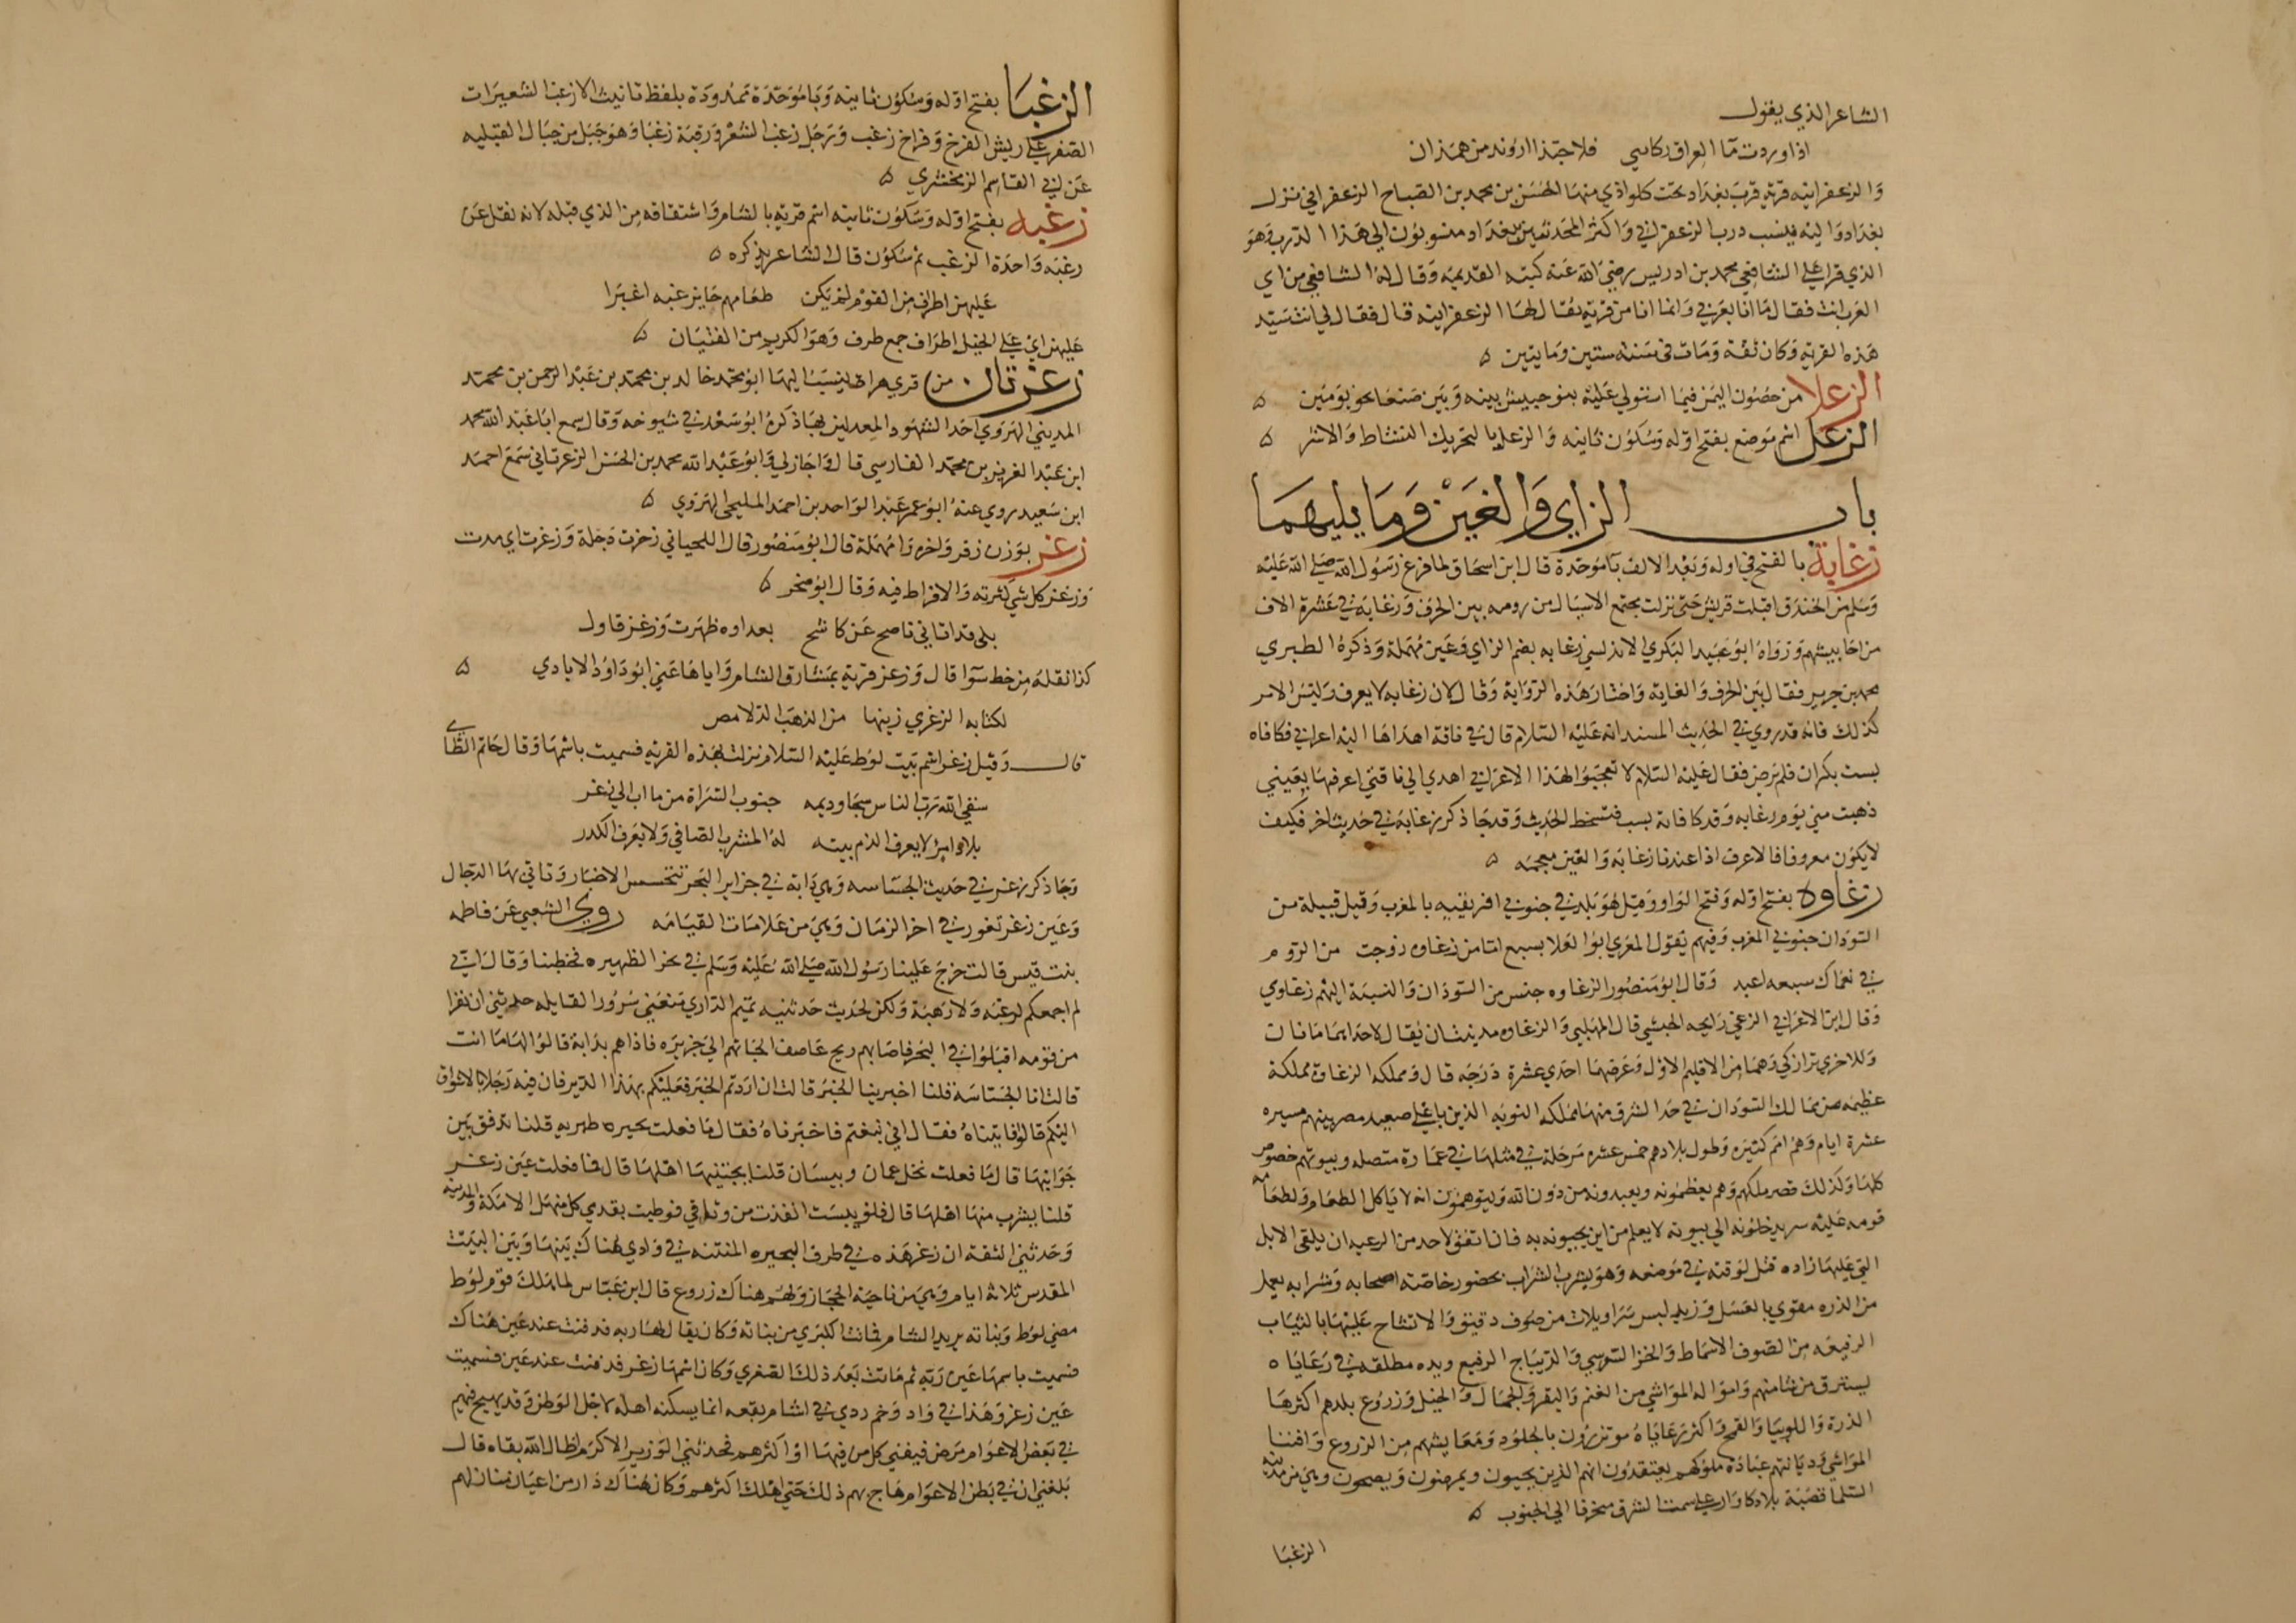 الشاعر الذي يقول
اذا وردت ما العراق ركابي فلا حبذا اروند من همذان
والزعفرانيه قرية قرب بغداد تحت كلواذي منها الحسن بن محمد بن الصباح الزعفراني نزل
بغداد واليه ينسب درب الزعفراني واكثر المحدثين ببغداد منسوبون الي هذا الدرب وهو
الذي قرا علي الشافعي محمد بن ادريس رضي الله عنه كتبه القديمه وقال له الشافعي من اي
العرب انت فقال ما انا بعربي وانما انا من قرية يقال لها الزعفرانيه قال فقال لي انت سيد
هذه القرية وكان ثقة ومات في سنة ستين ومايتين ه
الزعلا من حصون اليمن فيما استولي عليه بنو حبيش بينه وبين صنعا نحو يومين ه
الزعل اسم موضع بفتح اوله وسكون ثانيه والزعل بالتحريك النشاط والاشر ه
باب الزاي والغين وما يليهما
زغابة بالفتح في اوله وبعد الالف با موحدة قال ابن اسحاق لما فرغ رسول الله صلي الله عليه
وسلم من الخندق اقبلت قريش حتي نزلت بمجتمع الاسيال من رومه بين الجرف وزغابة في عشرة الاف
من احابيشهم ورواه ابو عبيد البكري الاندلسي زعابه بضم الزاي وعين مهملة وذكره الطبري
محمد بن جرير فقال بين الجرف والغابة واختار هذه الرواية وقال لان زغابه لا يعرف وليس الامر
كذلك فانه قد روي في الحديث المسند انه عليه السلام قال في ناقة اهداها اليه اعرابي فكافاه
بست بكران فلم يرض فقال عليه السلام لا تعجبوا لهذا الاعرابي اهدي الي ناقتي اعرفها بعيني
ذهبت مني يوم زغابه وقد كافاته بست فتسخط الحديث وقد جا ذكر زغابة في حديث اخر فكيف
لا يكون معروفا فالاعرف اذا عندنا زغابة والغين معجمه ه
زغاوه بفتح اوله وفتح الواو وقيل هو بلد في جنوبي افريقيه بالمغرب وقيل قبيلة من
السودان جنوبي المغرب وفيهم يقول المعري ابو العلا بسبع اما من زغاوه زوجت من الروم
في نعماك سبعه اعبد وقال ابو منصور الزغاوه جنس من السودان والنسبة اليهم زغاوي
وقال ابن الاعرابي الزغي رايحه الحبشي قال المهلبي والزغاوه مدينتان يقال لاحداهما مانان
وللاخري ترازكي وهما من الاقليم الاول وعرضهما احدي عشرة درجه قال ومملكه الزغاوة مملكة
عظيمه من ممالك السودان في حد الشرق منها مملكه النوبه الذين باعلي صعيد مصر بينهم مسيره
عشرة ايام وهم امم كثيره وطول بلادهم خمس عشره مرحلة في مثلها في عمارة متصله وبيوتهم خصوص
كلها وكذلك قصر ملكهم وهم يعظمونه ويعبدونه من دون الله ويتوهمون انه لا ياكل الطعام ولطعامه
قومه عليه سر يدخلونه الي بيوته لا يعلم من اين يجيونه به فان اتفق لاحد من الرعيه ان يلقي الابل
التي عليها زاده قتل لوقته في موضعه وهو يشرب الشراب بحضور خاصة اصحابه وشرابه يعمل
من الذره مقوي بالعسل وزيه لبس سراويلات من صوف رقيق والاتشاح عليها بالثياب
الرفيعه من الصوف الاسماط والخز السوسي والديباج الرفيع ويده مطلقه في رعاياه
يسترق من شا منهم وامواله المواشي من الغنم والبقر والجمال والخيل وزروع بلدهم اكثرها
الذرة واللوبيا والقمح واكثر رعاياه موتزرون بالجلود ومعايشهم من الزروع واقتنا
المواشي وديانتهم عبادة ملوكهم يعتقدون انهم الذين يحيون ويمرضون ويصحون وهي من مدينه
البلما قصبة بلاد كاوار علي سمت الشرق منحرفا الي الجنوب ه
الزغبا
الزغبا بفتح اوله وسكون ثانيه وبا موحدة ممدودة بلفظ تانيث الازغب الشعيرات
الصفر علي ريش الفرخ وفراخ زغب ورجل زغب الشعر ورقبة زغبا وهو جبل من جبال القبليه
عن ابي القاسم الزمخشري ه
زغبه بفتح اوله وسكون ثانيه اسم قرية بالشام واشتقاقه من الذي قبله لانه نقل عن
زغبه واحدة الزغب ثم سكون قال الشاعر يذكره ه
عليهن اطراف من القوم لم يكن طعامهم حبا بزغبه اغبرا
عليهن اي علي الخيل اطراف جمع طرف وهو الكريم من الفتيان ه
زغرتان من قري هراة ينسب اليها ابو محمد خالد بن محمد بن عبد الرحمن بن محمد
المديني الهروي احد الشهود المعدلين بها ذكره ابو سعد في شيوخه وقال سمع ابا عبد الله محمد
ابن عبد العزيز بن محمد الفارسي قال واجاز لي وابو عبد الله محمد بن الحسن الزغرتاني سمع احمد
ابن سعيد روي عنه ابو عمر عبد الواحد بن احمد المليحي الهروي ه
زغر بوزن زفر واخره را مهملة قال ابو منصور قال اللحياني زخرت دجلة وزغرت اي مدت
وزغر كل شي كثرته والافراط فيه وقال ابو صخر ه
بلي قد اتاني ناصح عن كاشح بعداوه ظهرت وزغر قاول
كذا نقله من خط سوا قال وزغر قرية بمشارق الشام واياها عني ابو داود الايادي ه
لكتابه الزغري زينها من الذهب الدلامص
قال وقيل زغر اسم بنت لوط عليه السلام نزلت بهذه القرية فسميت باسمها وقال حاتم الطاي
سقي الله رب الناس سحا وديمه جنوب السراة من ماب الي زغر
بلاد امرئ لا يعرف الذم بيته له المشرب الصافي ولا يعرف الكدر
وجا ذكر زغر في حديث الجساسه وهي دابة في جزاير البحر تتجسس الاخبار وتاتي بها الدجال
وعين زغر تغور في اخر الزمان وهي من علامات القيامه روي الشعبي عن فاطمه
بنت قيس قالت خرج علينا رسول الله صلي الله عليه وسلم في حر الظهيره فخطبنا وقال اني
لم اجمعكم لرغبه ولا رهبة ولكن لحديث حدثنيه تميم الداري منعني سروره القايله حدثني ان نفرا
من قومه اقبلوا في البحر فاصابهم ريح عاصف الجاتهم الي جزيره فاذا هم بدابة قالوا لها ما انت
قالت انا الجساسه قلنا اخبرينا الخبر قالت ان اردتم الخبر فعليكم بهذا الدير فان فيه رجلا بالاشواق
اليكم قال فاتيناه فقال اني نبغتم فاخبرناه فقال ما فعلت بحيره طبريه قلنا تدفق بين
جوانبها قال ما فعلت نخل عمان وبيسان قلنا يجتنيها اهلها قال فما فعلت عين زغر
قلنا يشرب منها اهلها قال فلو يبست انفذت من وثاقي فوطيت بقدمي كل منهل الا مكة والمدينه
وحدثني الثقة ان زغر هذه في طرف البحيره المنتنه في وادي هناك بينها وبين البيت
المقدس ثلاثة ايام وهي من ناحية الحجاز ولهم هناك زروع قال ابن عباس لما هلك قوم لوط
مضي لوط وبناته يريد الشام فماتت الكبري من بناته وكان يقال لها ربه فدفنت عند عين هناك
فسميت باسمها عين ربه ثم ماتت بعد ذلك الصغري وكان اسمها زغر فدفنت عند عين فسميت
عين زغر وهذا في واد وخم ردي في اشام بقعه انما يسكنه اهله لاجل الوطن وقد يهيج فيهم
في بعض الاعوام مرض فيفني كل من فيها او اكثرهم فحدثني الوزير الاكرم اطال الله بقاه قال
بلغني ان في بعض الاعوام هاج بهم ذلك حتي اهلك اكثرهم وكان هناك دار من اعيان منازلهم